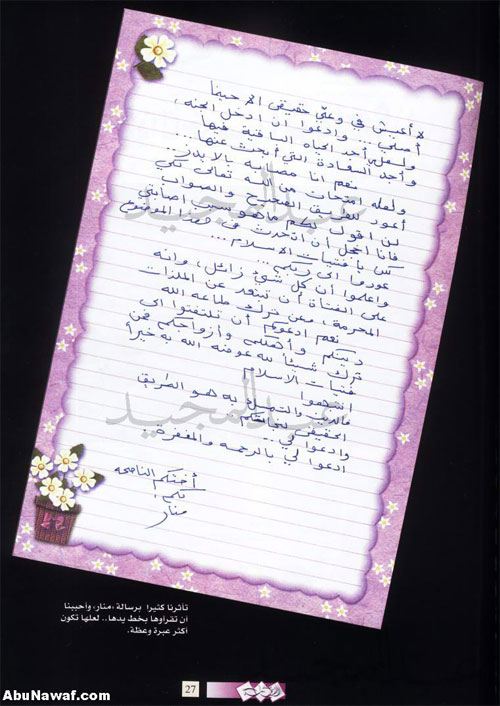 لا أعيش في وعيي حقيقي إلا حينما
أصلي... وادعوا ان ادخل الجنه،
ولعلي أجد الحياه الباقية فيها
وأجد السعادة التي أبحث عنها...
نعم انا مصابه بالايدز...
ولعله من الله تعالى لكي
أعود للطريق الصحيح والصواب
لن اقول لكم ما هو سبب اصابتي
فأنا اخجل ان اتحدث في هذا الموضوع
يا فتيات الاسلام...
عودوا الى ربكم...
واعلموا أن كل شيء زائل، وانه
على الفتاة أن تبتعد عن الملذات
المحرمة، فمن ترك طاعه الله
نعم ادعوكم أن تلتفتوا الى
دينكم وأهلكم وازواجكم فمن
ترك شيئاً لله عوضه الله به خيراً
فتيات الاسلام
انتبهوا
فالدين والتمسك به هو الطريق
الحقيقي لنجاتكم
وادعوا لي...
ادعوا لي بالرحمه والمغفرة..
أختكم الناصحه
لكم
منار
عبدالمجيد
عبدالمجيد
تأثرنا كثيرا برسالة «منار» وأحببنا
أن تقرأوها بخط يدها.. لعلها تكون
أكثر عبرة وعظة.
27
AbuNawaf.com